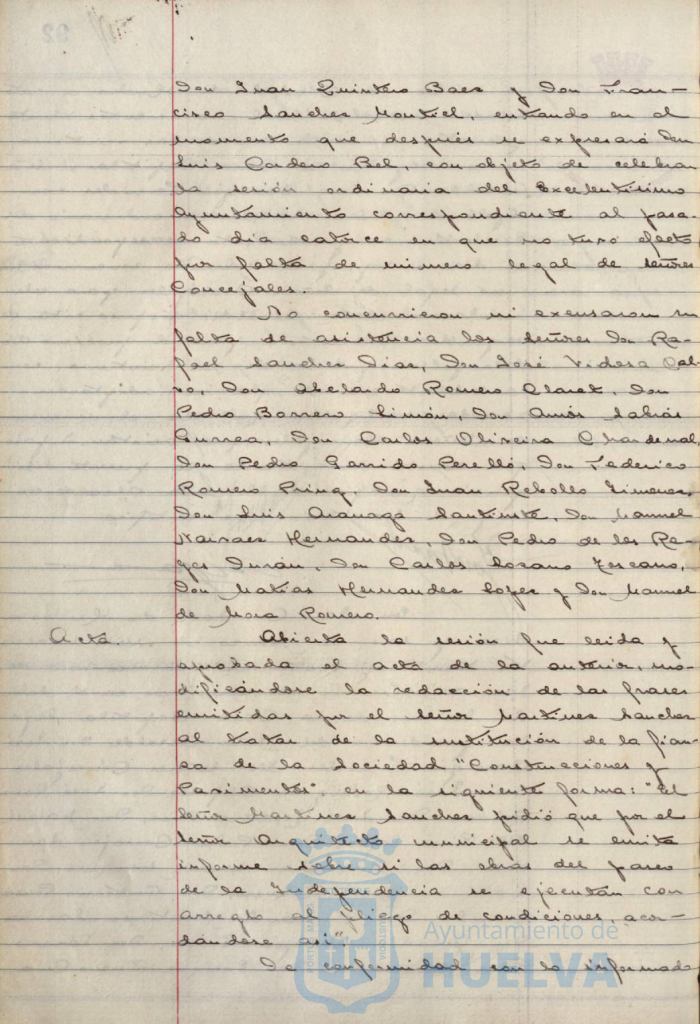 Don Juan Quintero Baez y Don Fran-
cisco Sanchez Montiel, entrando en el
momento que después se expresará Don
Luis Cordero Bel, con objeto de celebrar
la sesión ordinaria del Excelentísimo
Ayuntamiento correspondiente al pasa-
do día catorce en que no tuvo efecto
por falta de número legal de señores
Concejales.
No concurrieron ni excusaron su
falta de asistencia los señores Don Ra-
fael Sanchez Diaz, Don José Vidosa Cal-
vo, Don Abelardo Romero Claret, Don
Pedro Borrero Limón, Don Amós Sabrás
Gurrea, Don Carlos Oliveira Chardenal,
Don Pedro Garrido Perelló, Don Federico
Romero Prinq, Don Juan Rebollo Jimenez,
Don Luis Aranaga Santiuste, Don Manuel
Narvaez Hernandez, Don Pedro de los Re-
yes Durán, Don Carlos Lozano Lozano,
Don Matías Hernandez Lopez y Don Manuel
de Mora Romero.
Acta.
Abierta la sesión fue leida y
aprobada el acta de la anterior, mo-
dificándose la redacción de las frases
emitidas por el señor Martinez Sanchez
al tratar de la sustitución de la fian-
za de la Sociedad "Construcciones y
Pavimentos", en la siguiente forma: "El
señor Martinez Sanchez pidió que por el
señor Arquitecto municipal se emita
informe sobre si las obras del paseo
de la Independencia se ejecutan con
arreglo al pliego de condiciones, acor-
dándose así".
De conformidad con lo informado
Ayuntamiento de
HUELVA